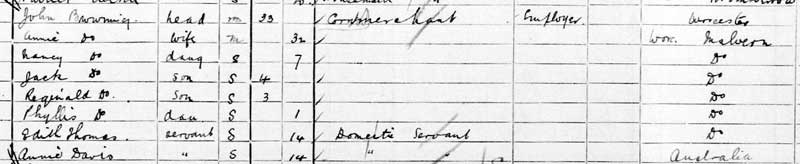 John Browning head m 33 Corn merchant Employer Worcester
Annie Do wife m 32 Wor. Malvern
Nancy Do daug S 7 Do
Jack Do son S 4 Do
Reginald Do. Son S 3 Do
Phyllis Do dau. S 1 Do
Edith Thomas. servant S 14 Domestic Servant Do
Annie Davis " S 14 " " Australia